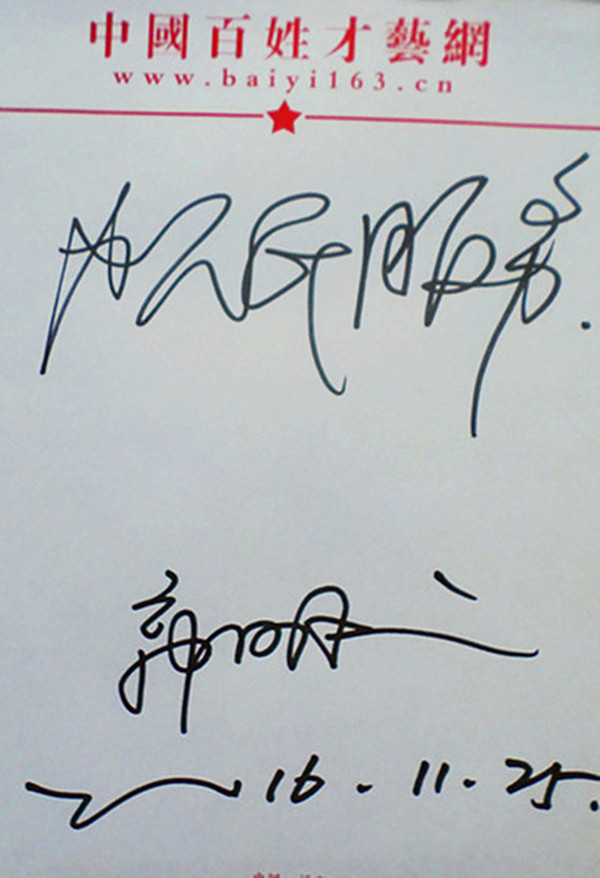 中國百姓才藝網
www.baiyi163.cn
为人民服务.
郭明义
16.11.25.